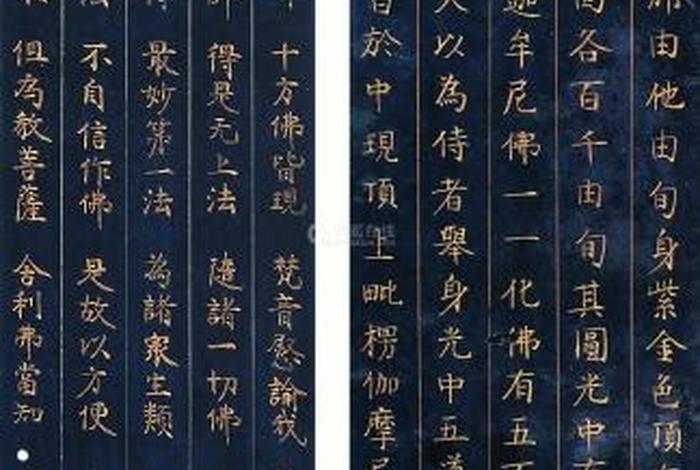 由他由旬身紫金色頂
各百千由旬其圓光中
迦牟尼佛一一化佛有五
以為侍者舉身光中五
於中現頂上毗楞伽摩
十方佛皆現 梵音慰諭我
得是无上法 隨諸一切佛
最妙第一法 為諸眾生類
法 不自信作佛 是故以方便
但為教菩薩 舍利弗當知